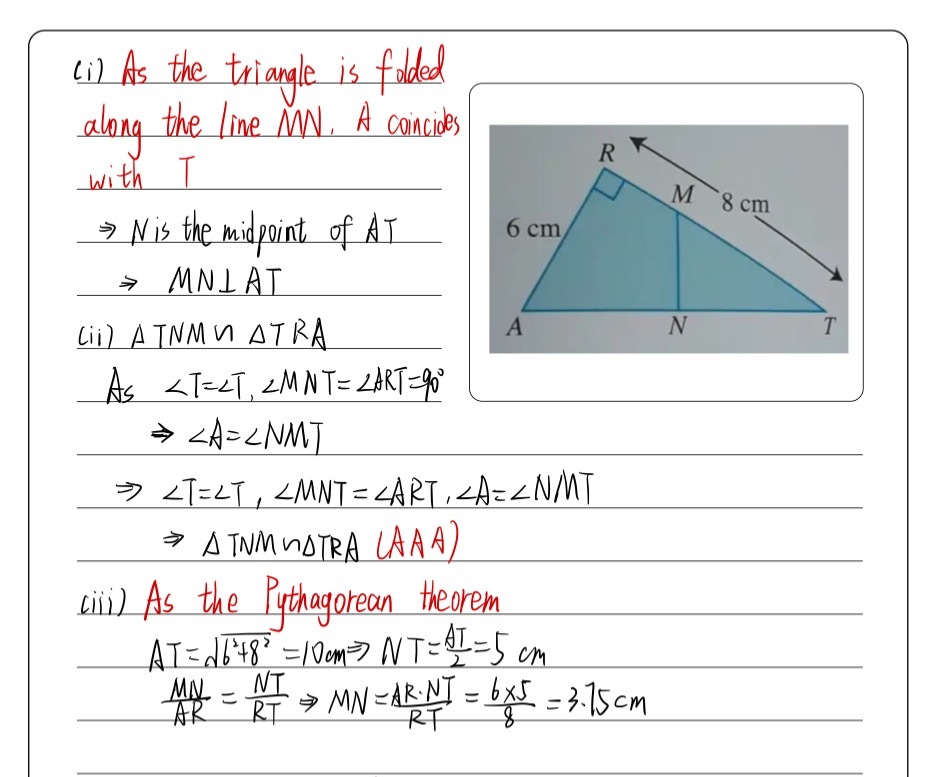 (i) As the triangle is folded
along the line MN, A coincides
with T
⇒ N is the midpoint of AT
⇒ MN⊥AT
(ii) △TNM∽△TRA
As ∠T=∠T, ∠MNT=∠ART=90°
⇒ ∠A=∠NMT
⇒ ∠T=∠T, ∠MNT=∠ART, ∠A=∠NMT
⇒ △TNM∽△TRA (AAA)
(iii) As the Pythagorean theorem
AT=√(6²+8²) =10cm⇒ NT=AT/2=5 cm
MN/AR = NT/RT ⇒ MN=AR·NT/RT = 6×5/8 =3.75cm
R
M
8 cm
6 cm
A
N
T